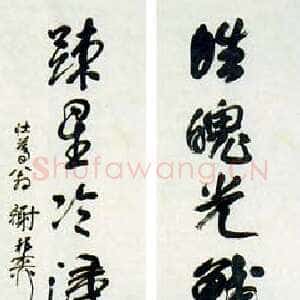 皓魄光
疎星冷
壮暮翁 谢稚柳
Shufawang.CN